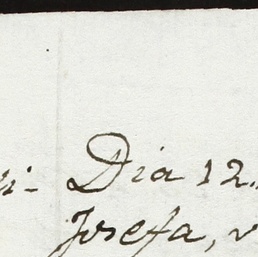 Dia 12.
Josefa,